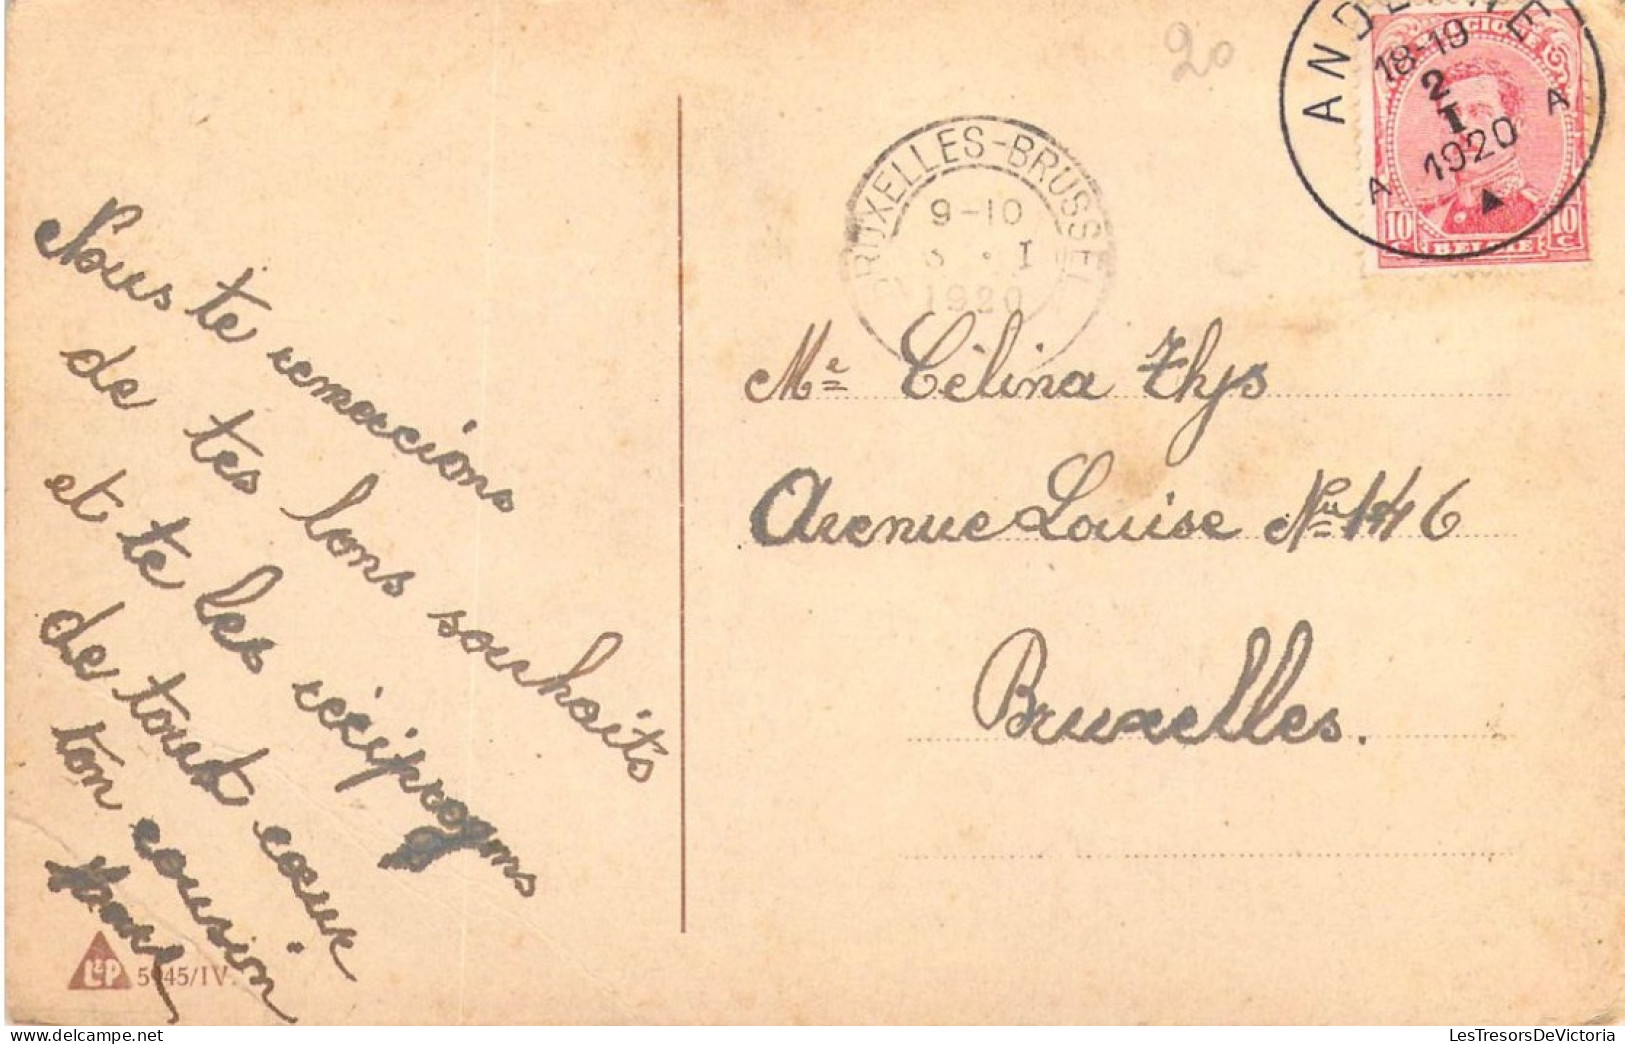 Nous te remercions
de tes bons souhaits
et te les réciproqons
de tout cœur
ton cousin
L&P 5945/IV.
20
BRUXELLES-BRUSSEL
9-10
3 · I
1920
ANDENNE
18-19
2
I
1920
A A
BELGIQUE
10 c 10 c
BELGIE
Me Célina Thys
Avenue Louise No 146
Bruxelles.
LesTresorsDeVictoria.com